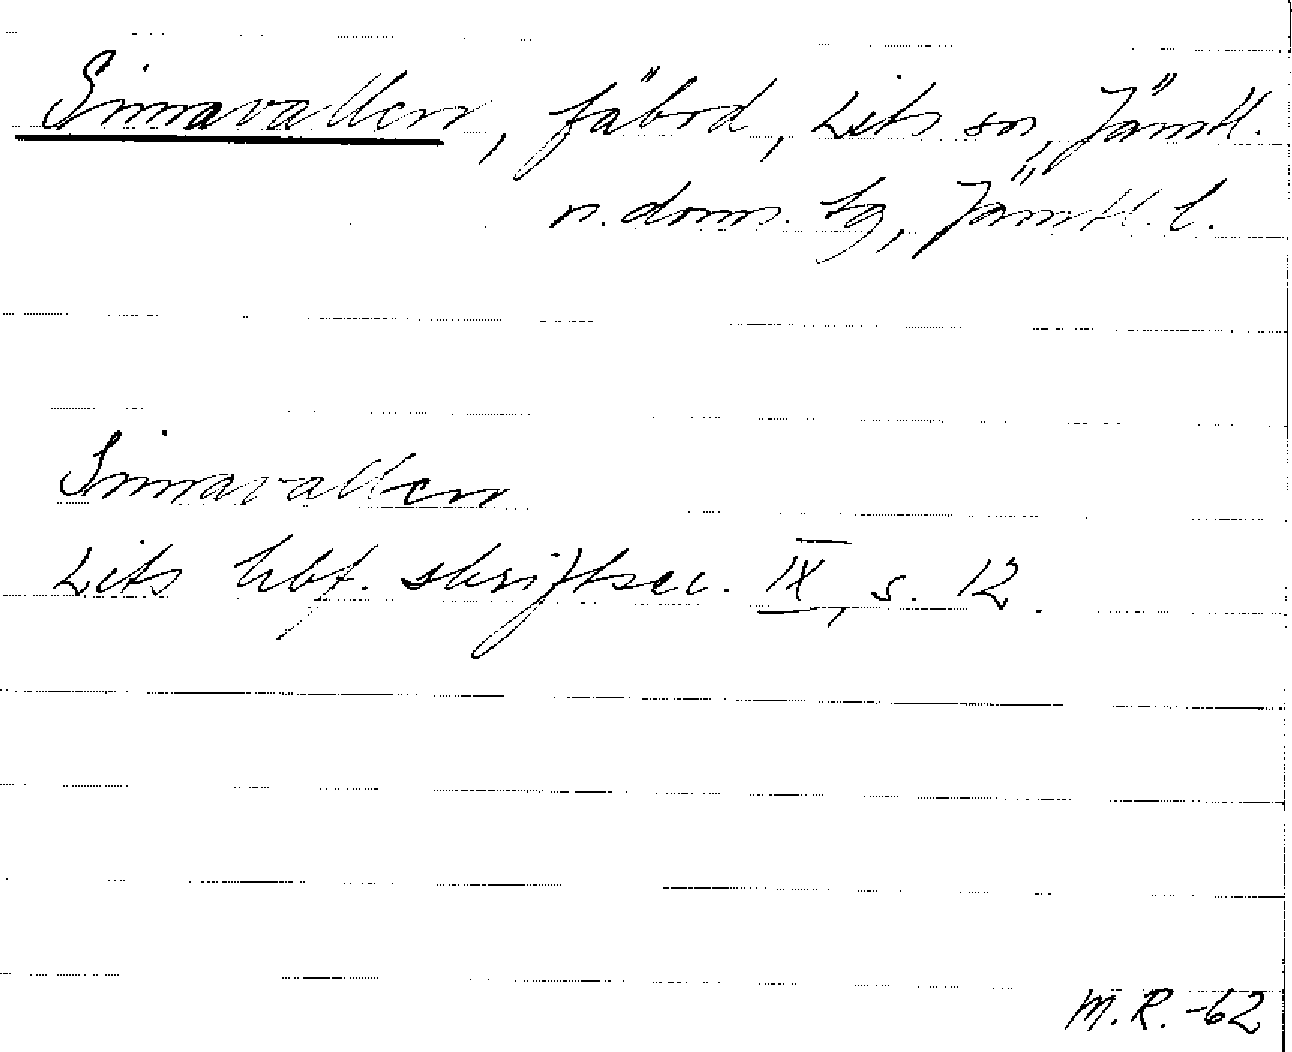 Sinnavallen, fäbod, Lits sn, Jämtl.
n. doms. tg, Jämtl. l.
Sinnavallen
Lits hbf. skriftser. IX, s. 12.
M.R. -62